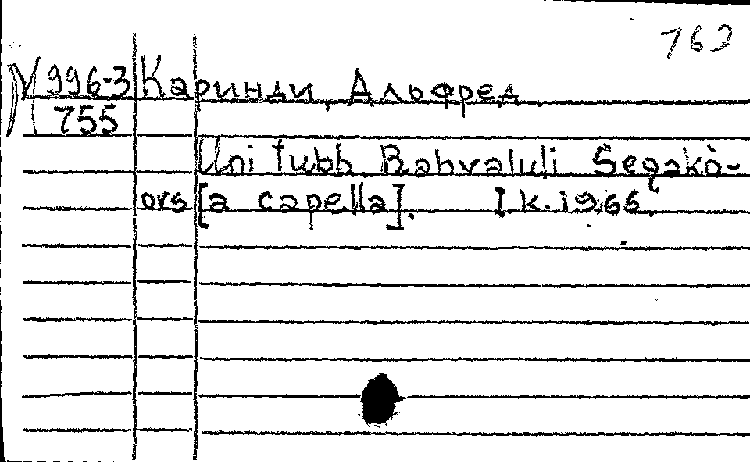 762
996-3 Каринди, Альфред
755
Uni tubb. Rahvaluli Segakò-
ors [a capella]. I k. 1965.